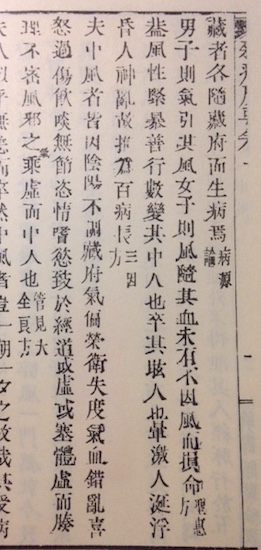 藏者各隨藏府而生病焉病源論
男子則氣引其風女子則風隨其血未有不因風血損命聖惠方
蓋風性緊暴善行數變其中人也卒其眩人也暈激人涎浮
昏人神亂故為百病長三因方
夫中風者皆因陰陽不調藏府氣偏榮衛失度氣血錯亂喜
怒過傷飲啖無節恣情嗜慾致於經道或虛或塞體虛而腠
理不密風邪之氣乘虛而中人也管見大全良方
中風者豈一朝一夕之故哉其受病